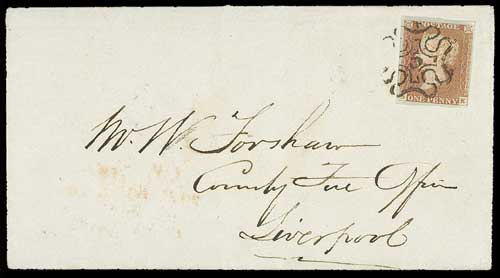 POSTAGE
ONE PENNY
Mr. W Forshaw
County Fire Office
Liverpool